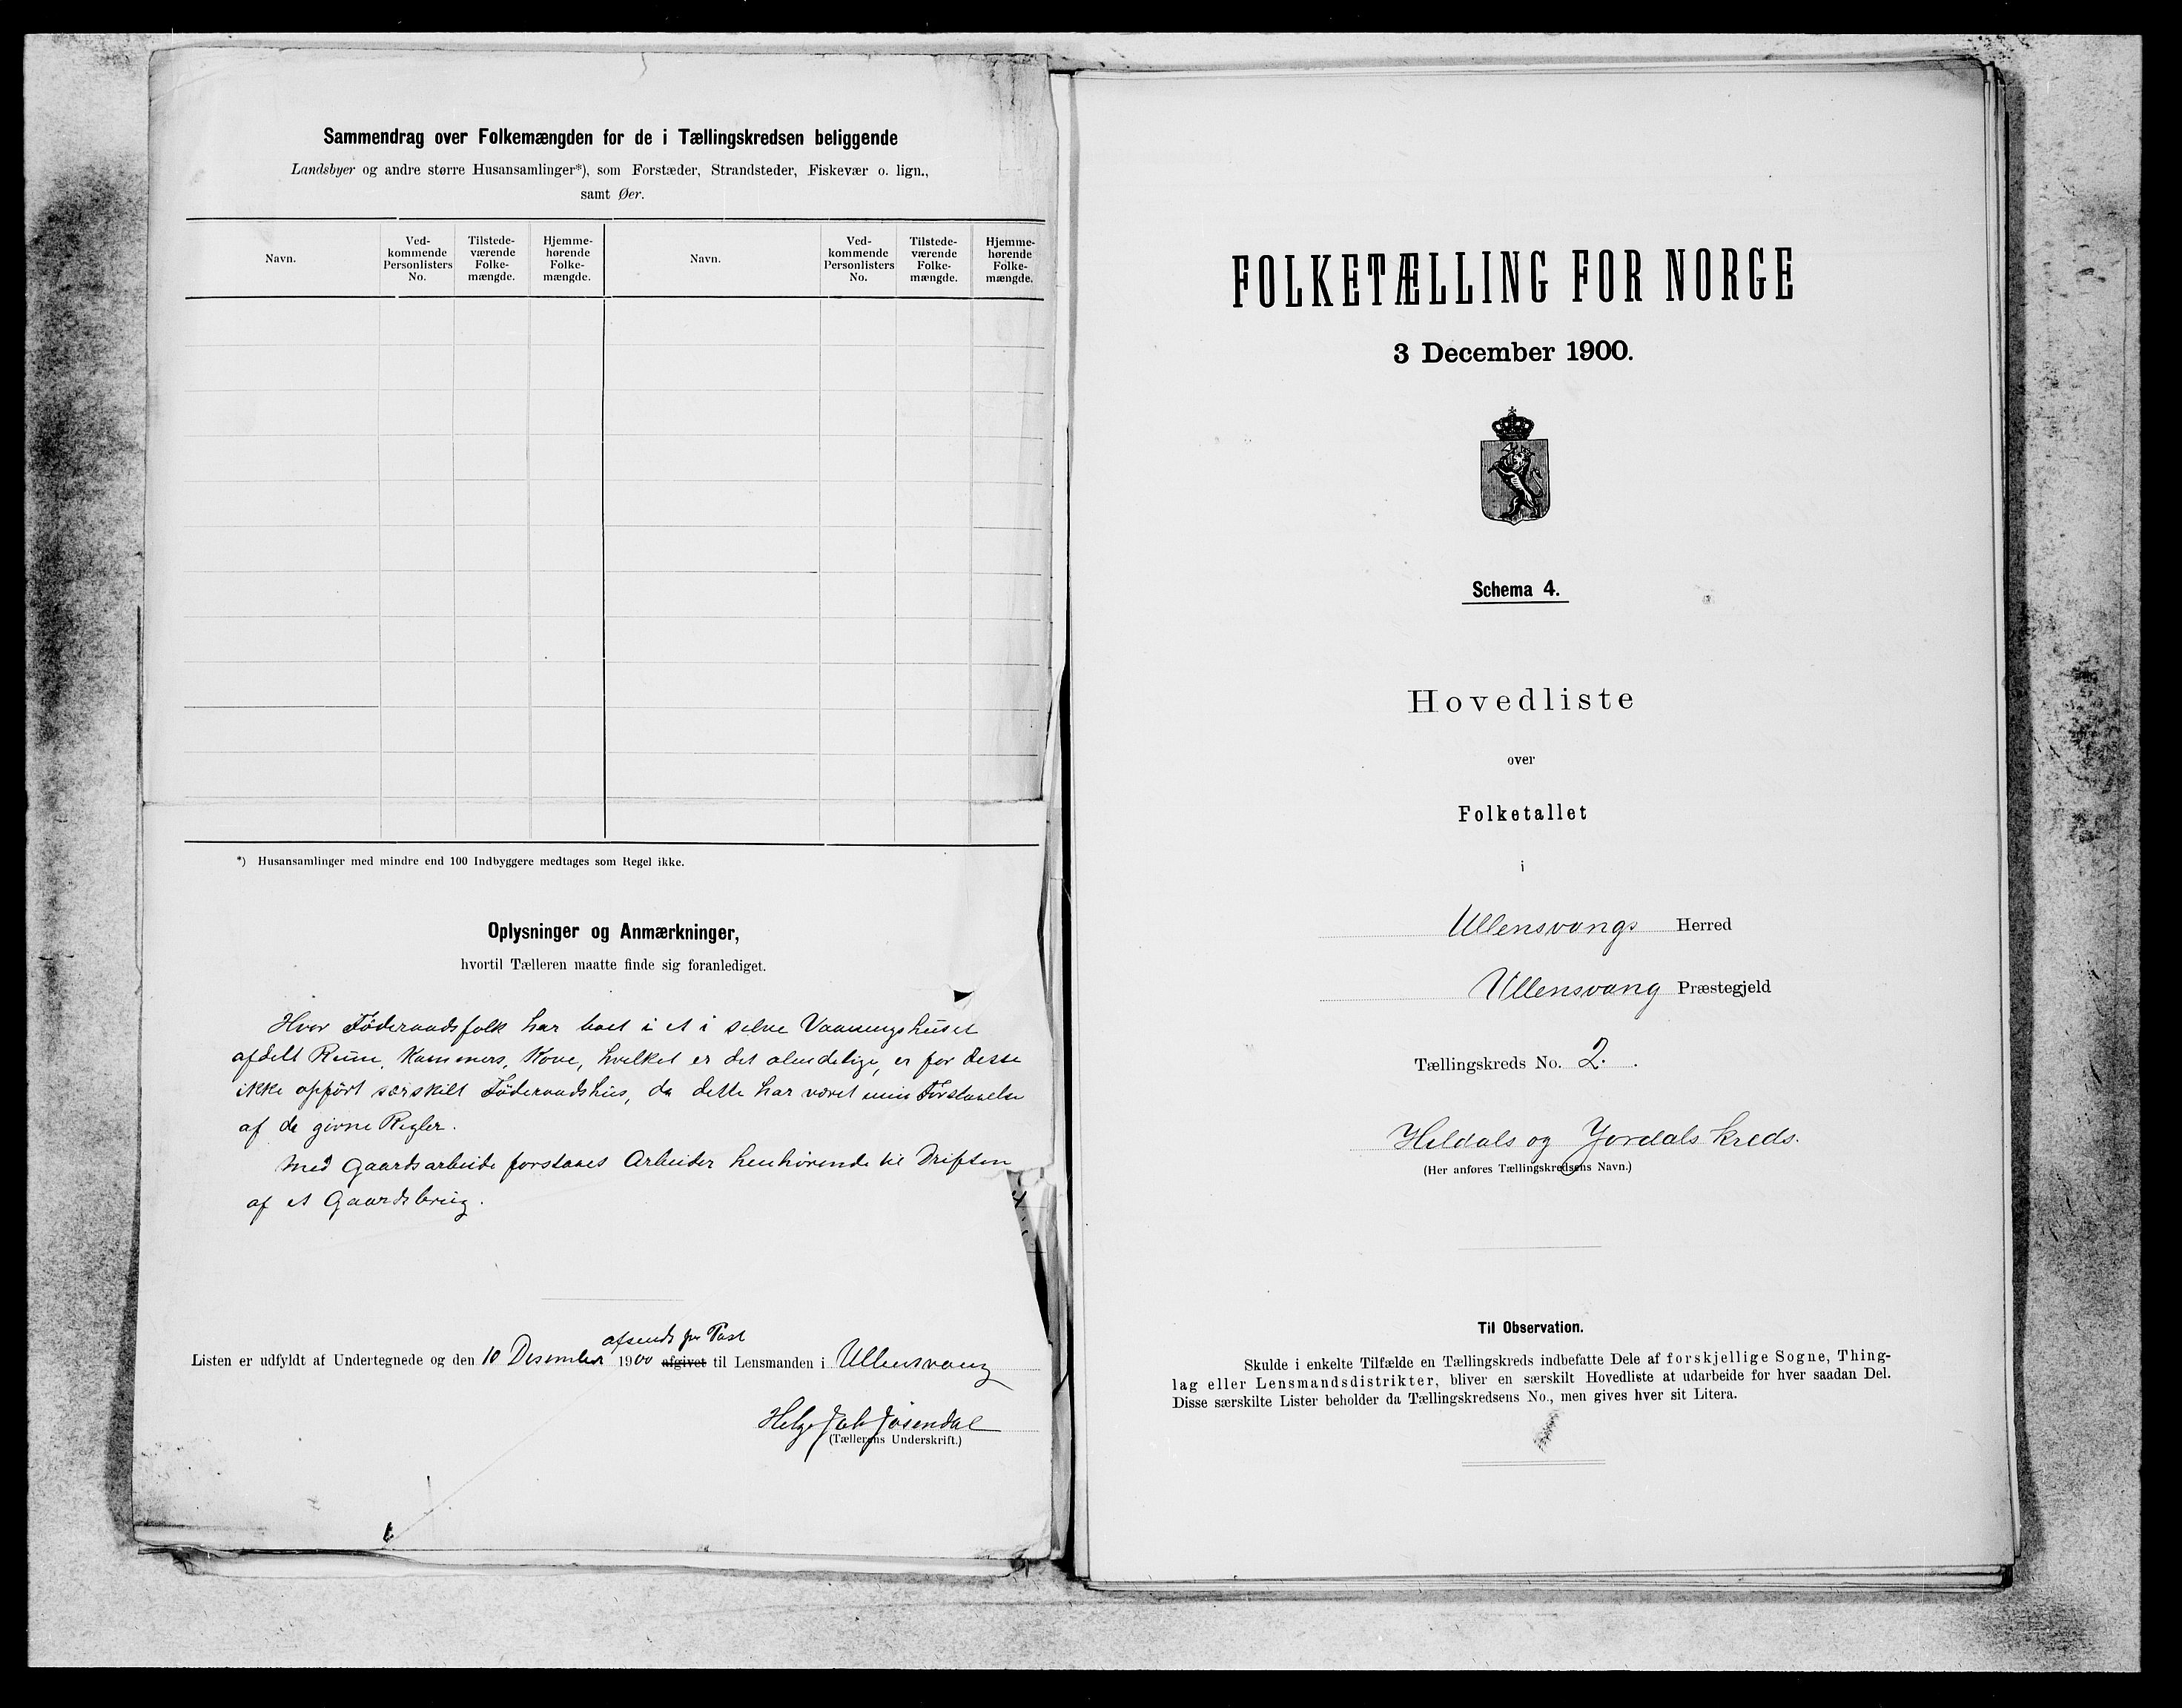 Sammendrag over Folkemængden for de i Tællingskredsen beliggende
Landsbyer og andre større Husansamlinger*), som Forstæder, Strandsteder, Fiskevær o. lign.,
samt Øer.
Navn.
Ved-
kommende
Personlisters
No.
Tilstede-
værende
Folke-
mængde.
Hjemme-
hørende
Folke-
mængde.
Navn.
Ved-
kommende
Personlisters
No.
Tilstede-
værende
Folke-
mængde.
Hjemme-
hørende
Folke-
mængde.
*) Husansamlinger med mindre end 100 Indbyggere medtages som Regel ikke.
Oplysninger og Anmærkninger,
hvortil Tælleren maatte finde sig foranlediget.
Hvor Föderaadsfolk har boet i et i selve Vaaningshuset
afdelt Rum, Kammers, Kove, hvilket er det almindelige, er for disse
ikke opfört særskilt Föderaadshus, da dette har været min Forstaaelse
af de givne Regler.
Med Gaardsarbeide forstaaes Arbeider henhörende til Driften
af et Gaardsbrug.
afsendt pr Post
Listen er udfyldt af Undertegnede og den 10 Desember 1900 afgivet til Lensmanden i Ullensvang
Helge Josendal
(Tællerens Underskrift.)
FOLKETÆLLING FOR NORGE
3 December 1900.
Schema 4.
Hovedliste
over
Folketallet
i
Ullensvangs Herred
Ullensvang Præstegjeld
Tællingskreds No. 2.
Hildals og Jordals kreds.
(Her anføres Tællingskredsens Navn.)
Til Observation.
Skulde i enkelte Tilfælde en Tællingskreds indbefatte Dele af forskjellige Sogne, Thing-
lag eller Lensmandsdistrikter, bliver en særskilt Hovedliste at udarbeide for hver saadan Del.
Disse særskilte Lister beholder da Tællingskredsens No., men gives hver sit Litera.